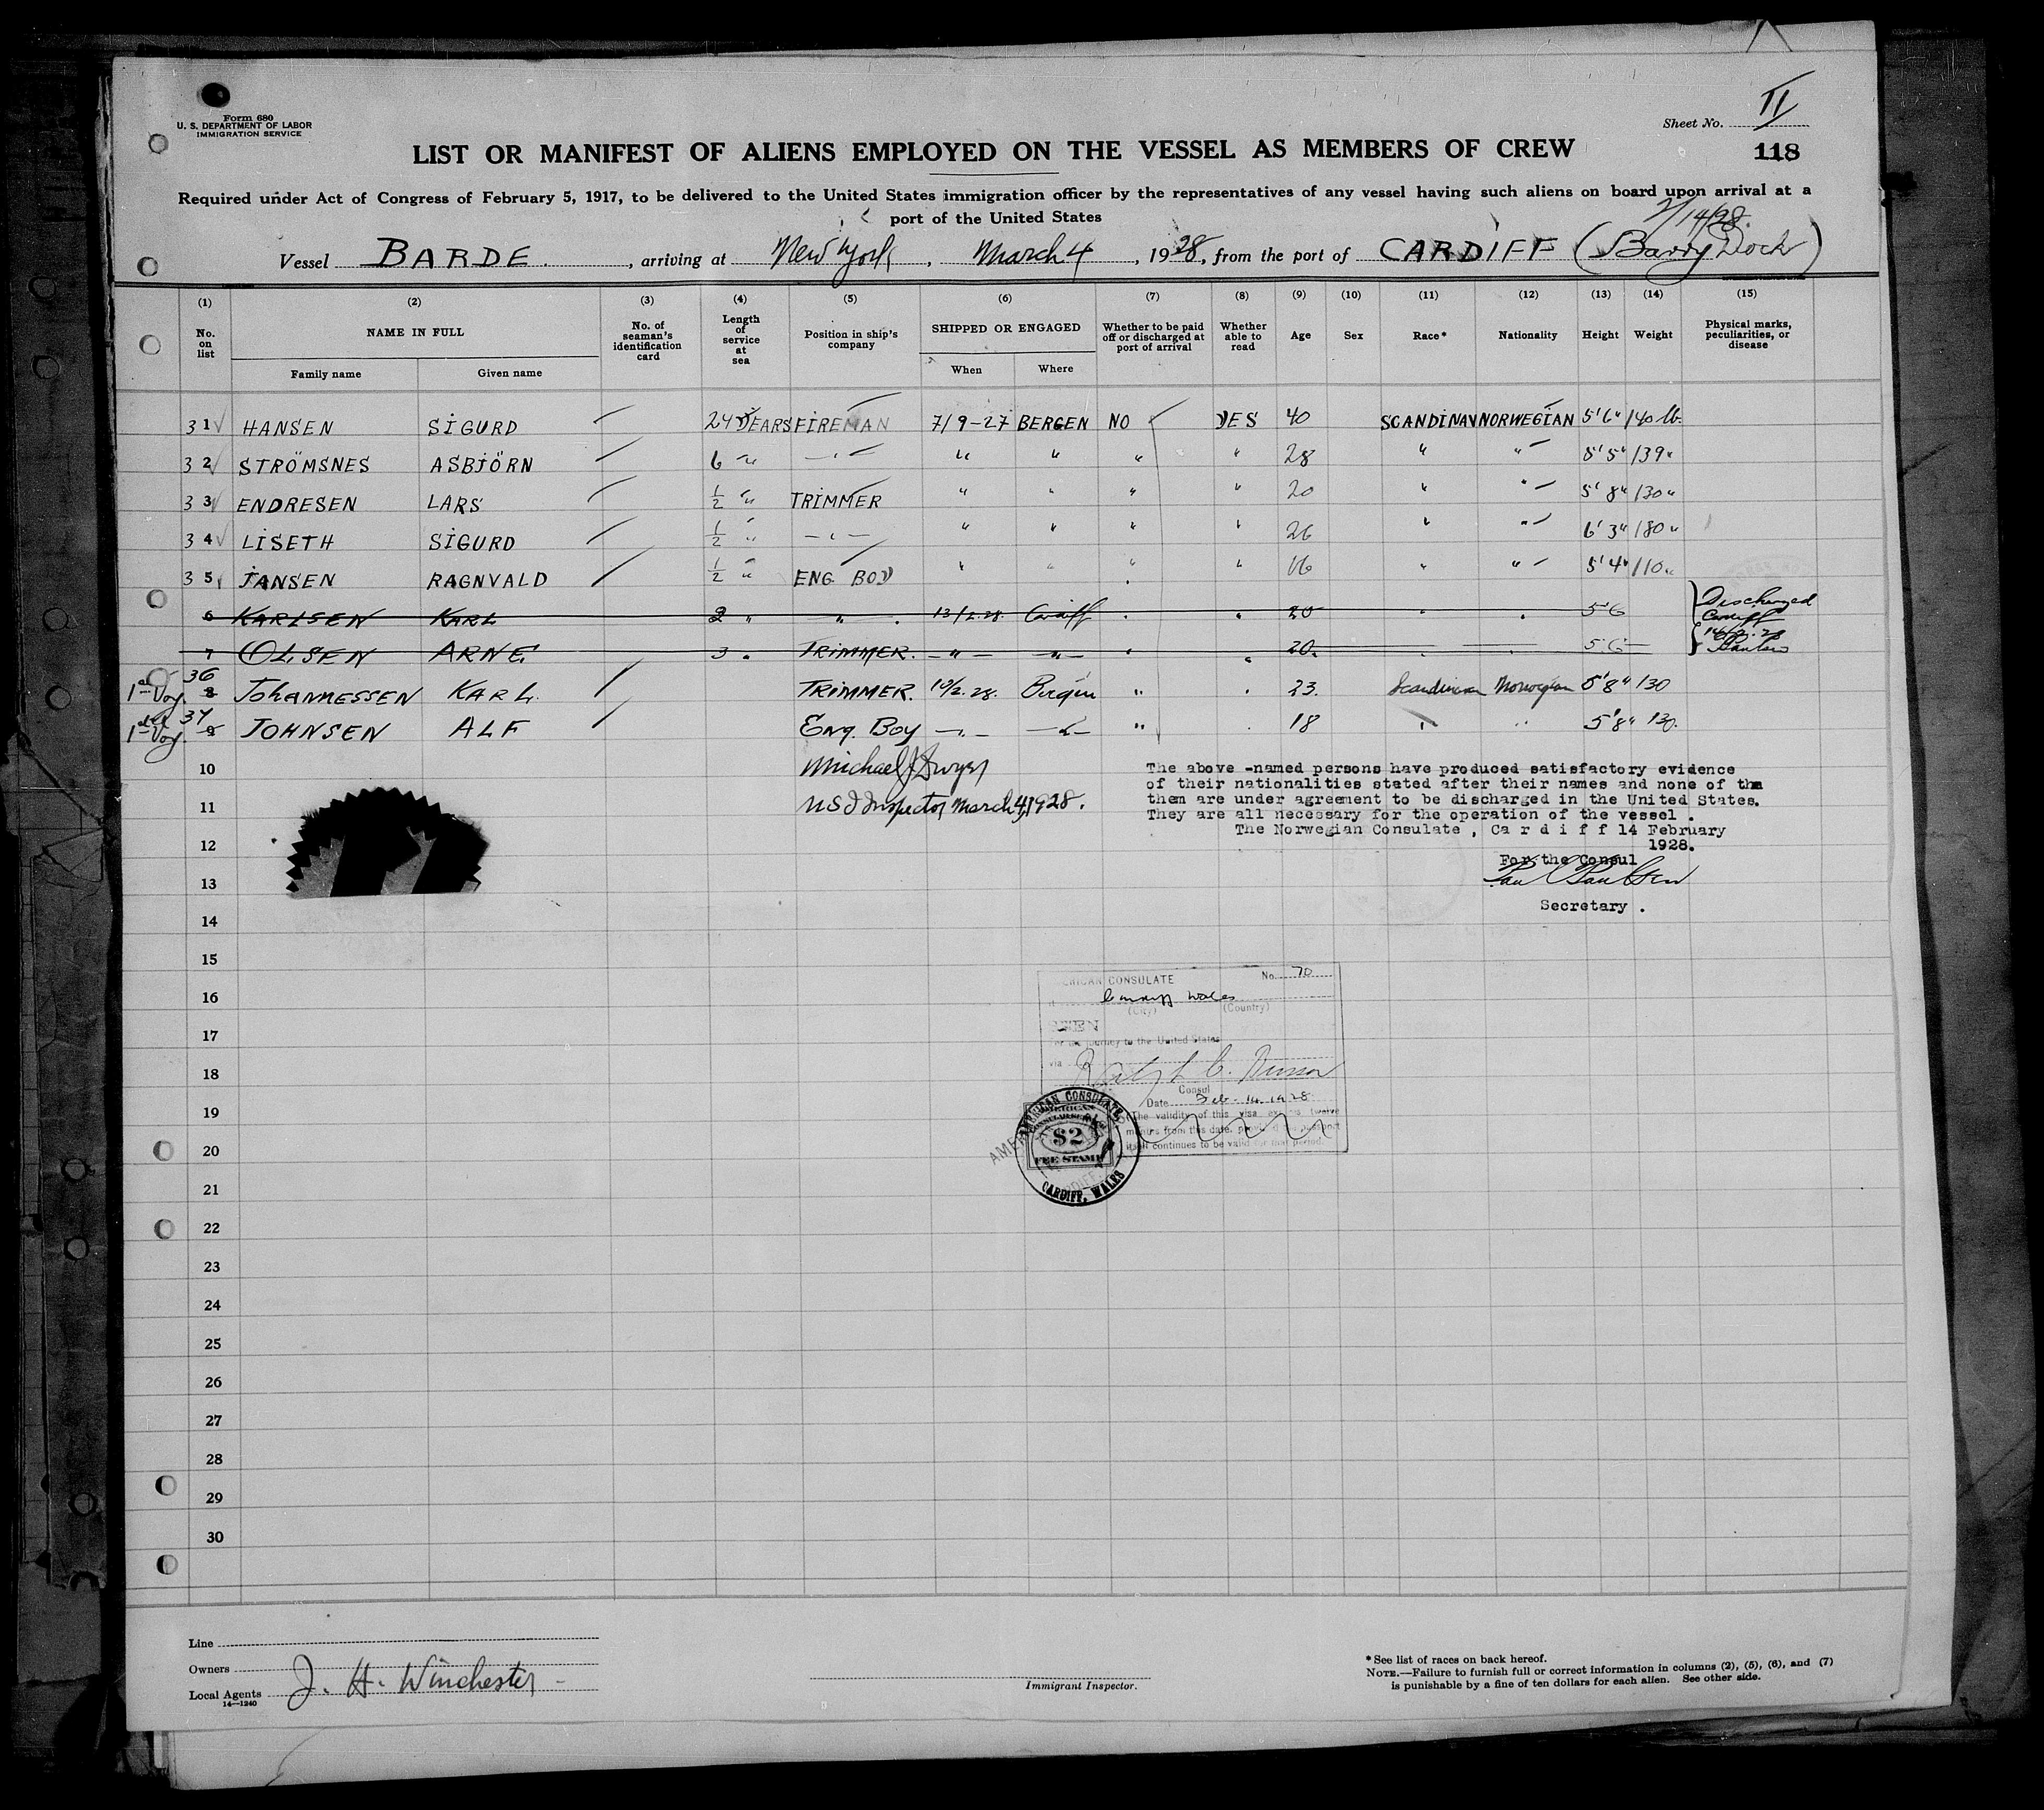 Form 680
U. S. DEPARTMENT OF LABOR
IMMIGRATION SERVICE
Sheet No. II
118
LIST OR MANIFEST OF ALIENS EMPLOYED ON THE VESSEL AS MEMBERS OF CREW
Required under Act of Congress of February 5, 1917, to be delivered to the United States immigration officer by the representatives of any vessel having such aliens on board upon arrival at a
port of the United States
2/14/28
Vessel BARDE, arriving at New York, March 4, 1928, from the port of CARDIFF (Barry Dock)
(1) (2) (3) (4) (5) (6) (7) (8) (9) (10) (11) (12) (13) (14) (15)
No. on list NAME IN FULL No. of seaman's identification card Length of service at sea Position in ship's company SHIPPED OR ENGAGED Whether to be paid off or discharged at port of arrival Whether able to read Age Sex Race* Nationality Height Weight Physical marks, peculiarities, or disease
Family name Given name When Where
31 HANSEN SIGURD 24 YEARS FIREMAN 7/9-27 BERGEN NO YES 40 SCANDINAV NORWEGIAN 5'6" 140 lb.
32 STRÖMSNES ASBJÖRN 6 " -"- " " " " 28 " " 5'5" 139 "
33 ENDRESEN LARS 1/2 " TRIMMER " " " " 20 " " 5'8" 130 "
34 LISETH SIGURD 1/2 " -"- " " " " 26 " " 6'3" 180 "
35 JANSEN RAGNVALD 1/2 " ENG. BOY " " " " 16 " " 5'4" 110 "
6 KARLSEN KARL 2 " " 13/2.28. Cardiff " " 20 " " 5'6 Discharged
Cardiff
7 OLSEN ARNE 3 " TRIMMER. -"- -"- " " 20. " " 5'6 14/2.28
Paulsen
1st Voy. 36 8 JOHANNESSEN KARL. TRIMMER. 10/2.28. Bergen " " 23. Scandinavian Norwegian 5'8" 130
1st Voy. 37 9 JOHNSEN ALF Eng. Boy -"- -"- " " 18 " " 5'8" 130.
10 Michael J Dwyer
11 US I Inspector March 4, 1928.
The above -named persons have produced satisfactory evidence
of their nationalities stated after their names and none of the
them are under agreement to be discharged in the United States.
They are all necessary for the operation of the vessel .
The Norwegian Consulate , Ca r d i f f 14 February
1928.
For the Consul
Paul Paulsen
Secretary .
12
13
14
15
16
17
18
19
20
21
22
23
24
25
26
27
28
29
30
AMERICAN CONSULATE No. 70
Cardiff Wales
(City) (Country)
SEEN
For the journey to the United States
via
Consul
Date Feb. 14. 1928
The validity of this visa expires twelve
months from this date, provided the passport
itself continues to be valid for that period.
AMERICAN CONSULATE
$2
FEE STAMP
CARDIFF, WALES
Line
Owners
Local Agents J. H. Winchester
14—1240
Immigrant Inspector.
*See list of races on back hereof.
NOTE.—Failure to furnish full or correct information in columns (2), (5), (6), and (7)
is punishable by a fine of ten dollars for each alien. See other side.